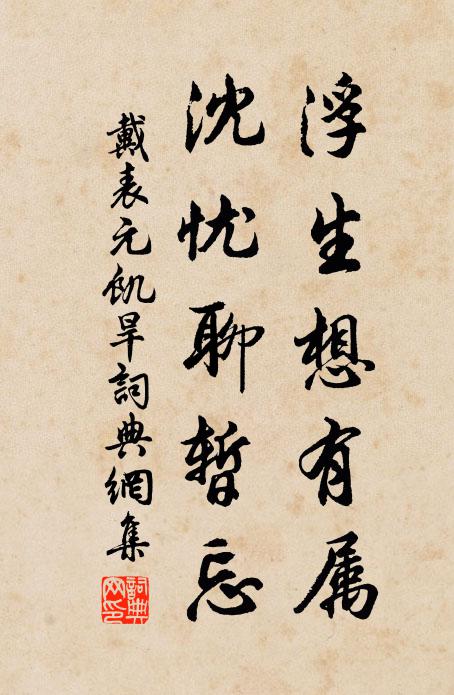 浮生想有属
沈忧聊暂忘
戴表元飢旱詞典網集
詞典网印